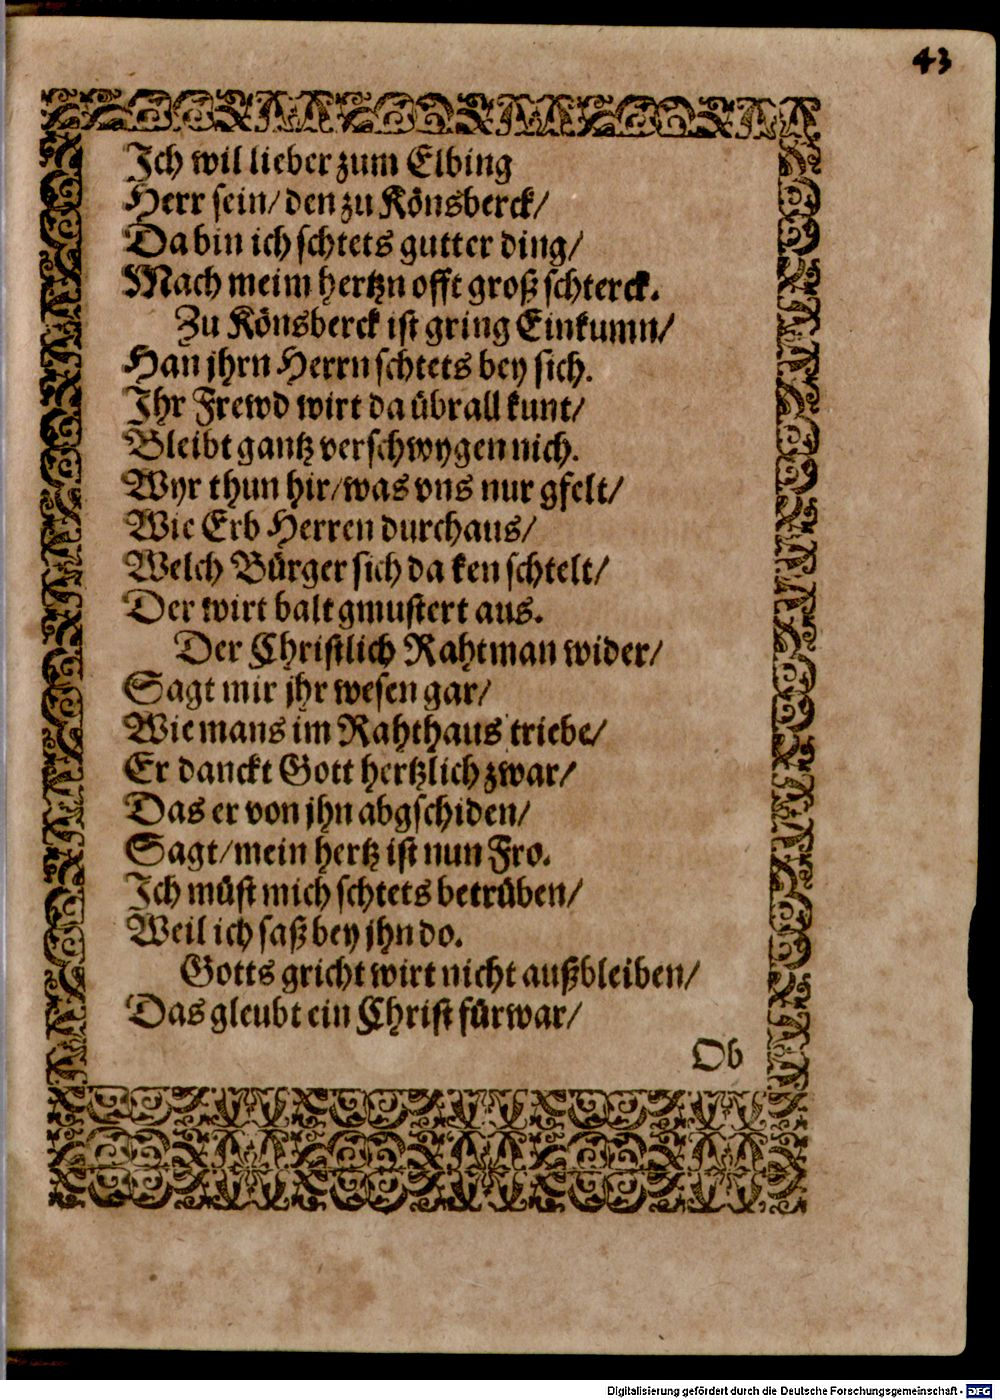 43
Ich wil lieber zum Elbing
Herr sein/ den zu Könsberck/
Da bin ich schtets gutter ding/
Mach meim hertzn offt groß schterck.
Zu Könsberck ist gring Einkumn/
Han jhrn Herrn schtets bey sich.
Ihr Frewd wirt da übrall kunt/
Bleibt gantz verschwygen nich.
Wyr thun hir/ was vns nur gfelt/
Wie Erb Herren durchaus/
Welch Bürger sich da ken schtelt/
Der wirt balt gmustert aus.
Der Christlich Rahtman wider/
Sagt mir jhr wesen gar/
Wie mans im Rahthaus triebe/
Er danckt Gott hertzlich zwar/
Das er von jhn abgschiden/
Sagt/ mein hertz ist nun Fro.
Ich müst mich schtets betrüben/
Weil ich saß bey jhn do.
Gotts gricht wirt nicht außbleiben/
Das gleubt ein Christ fürwar/
Ob
Digitalisierung gefördert durch die Deutsche Forschungsgemeinschaft - DFG